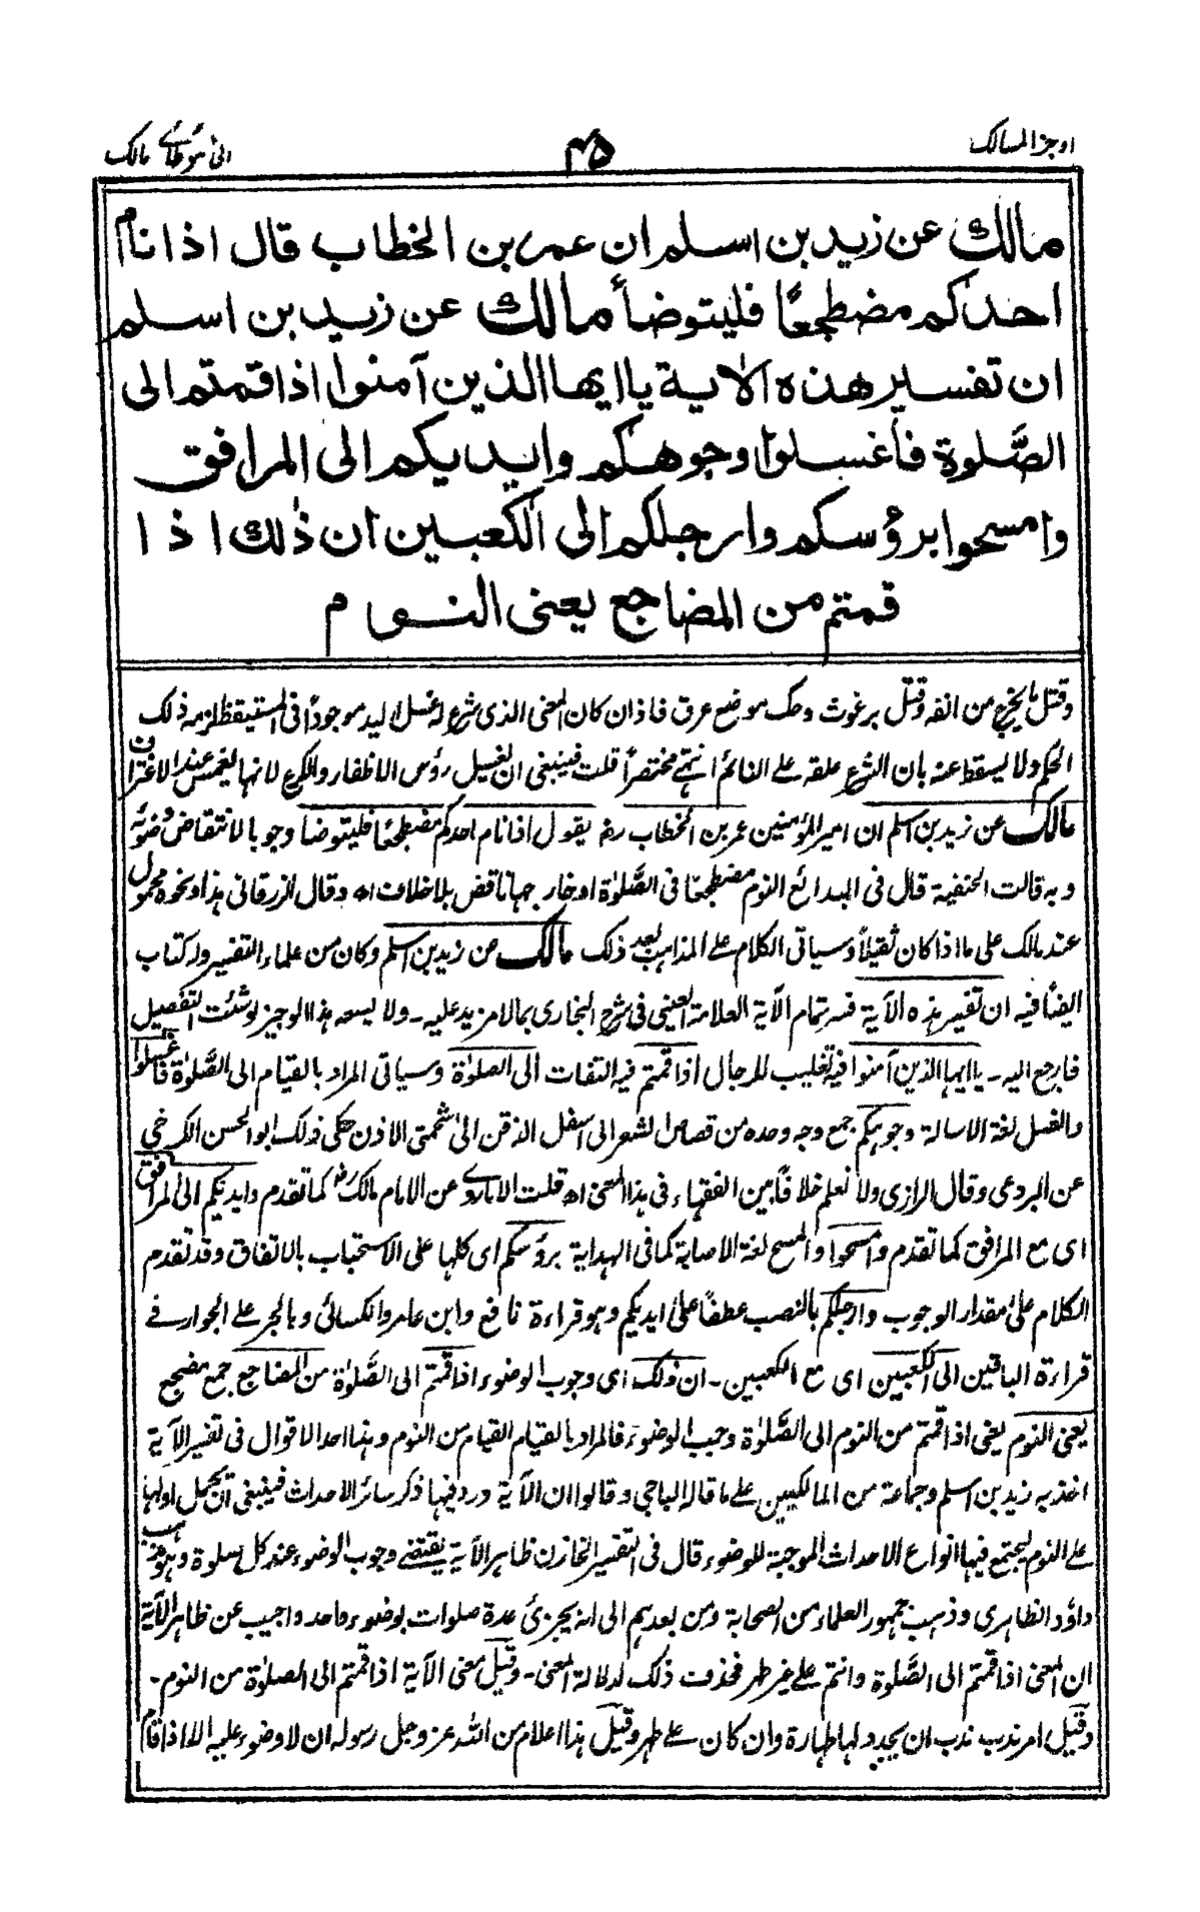 اوجز المسالك
٤٥
الى موطائے مالك
مالك عن زيد بن اسلم ان عمر بن الخطاب قال اذا نام
احدكم مضطجعًا فليتوضأ مالك عن زيد بن اسلم
ان تفسير هذه الاٰية يا ايها الذين آمنوا اذا قمتم الى
الصَّلوة فأغسلوا وجوهكم وايديكم الى المرافق
وامسحوا برؤسكم وارجلكم الى الكعبين ان ذٰلك اذا
قمتم من المضاجع يعنى النوم
وقتل ما يخرج من انفه وقتل برغوث وحك موضع عرق فاذا ن كان المعنى الذى شرع له غسل اليد موجودًا فى المستيقظ لزمه ذلك
الحكم ولا يسقط عنه بان الشرع علقه على النائم انتهے مختصرًا قلت فينبغى ان يغسل رؤس الاظفار والكرع لانها يغمس عند الاغتراف
مالك عن زيد بن اسلم ان امير المؤمنين عمر بن الخطاب رضه يقول اذا نام احدكم مضطجعًا فليتوضأ وجوبا لانتقاض وضوئه
وبه قالت الحنفية قال فى البدائع النوم مضطجعًا فى الصَّلوٰة او خارجها ناقض بلا خلاف اھ وقال الزرقانى هذا ونحوه محمول
عند مالك على ما اذا كان ثقيلاً وسياتى الكلام على المذاهب بعد ذلك مالك عن زيد بن اسلم وكان من علماء التفسير وله كتاب
ايضًا فيه ان تفسير هذه الآية فسر بتمام الآية العلامة العينى فى شرح البخارى بمالا مزيد عليه ۔ ولا يسعه هذا الوجيز لو شئت التفصيل
فارجع اليه ۔ يا ايها الذين آمنوا فيه تغليب للرجال اذا قمتم فيه التفات الى الصلوٰة وسياتى المراد بالقيام الى الصَّلوٰة فاغسلوا
والغسل لغة الاسالة وجوهكم جمع وجه وحده من قصاص الشعر الى اسفل الذقن الى شحمتى الاذن حكى ذلك ابو الحسن الكرخى
عن البردعى وقال الرازى ولا نعلم خلافًا بين الفقهاء فى هذا المعنى اھ قلت الا ما روے عن الامام مالك رضه كما تقدم وايديكم الى المرافق
اى مع المرافق كما تقدم وامسحوا والمسح لغة الاصابة كما فى الهداية برؤسكم اى كلها على الاستحباب بالاتفاق وقد تقدم
الكلام علىٰ مقدار الوجوب وارجلكم بالنصب عطفًا على ايديكم وهو قراءة نافع وابن عامر والكسائى وبالجر على الجوار فے
قراءة الباقين الى الكعبين اى مع الكعبين ۔ ان ذلك اى وجوب الوضوء اذا قمتم الى الصَّلوٰة من المضاجع جمع مضجع
يعنى النوم يعنى اذا قمتم من النوم الى الصَّلوٰة وجب الوضوء فالمراد بالقيام القيام من النوم وهذا احد الاقوال فى تفسير الآية
اخذ به زيد بن اسلم وجماعة من المالكيين على ما قاله الباجى وقالوا ان الآية ورد فيها ذكر سائر الاحداث فينبغى ان يحمل اولها
على النوم ليجتمع فيها انواع الاحداث الموجبة للوضوء قال فى التفسير الخازن ظاهر الآية يقتضے وجوب الوضوء عند كل صلوة وهو مذهب
داؤد الظاهرى وذهب جمهور العلماء من الصحابة ومن بعدهم الى انه يجزئ عدة صلوات بوضوء واحد واجيب عن ظاهر الآية
ان المعنى اذا قمتم الى الصَّلوٰة وانتم على غير طهر فحذف ذلك لدلالة المعنى ۔ وقيل معنى الآية اذا قمتم الى الصلوٰة من النوم ۔
وقيل امر ندب ندب ان يجدد لها طهارة وان كان على طهر وقيل هذا اعلام من الله عز وجل رسوله ان لا وضوء عليه الا اذا قام